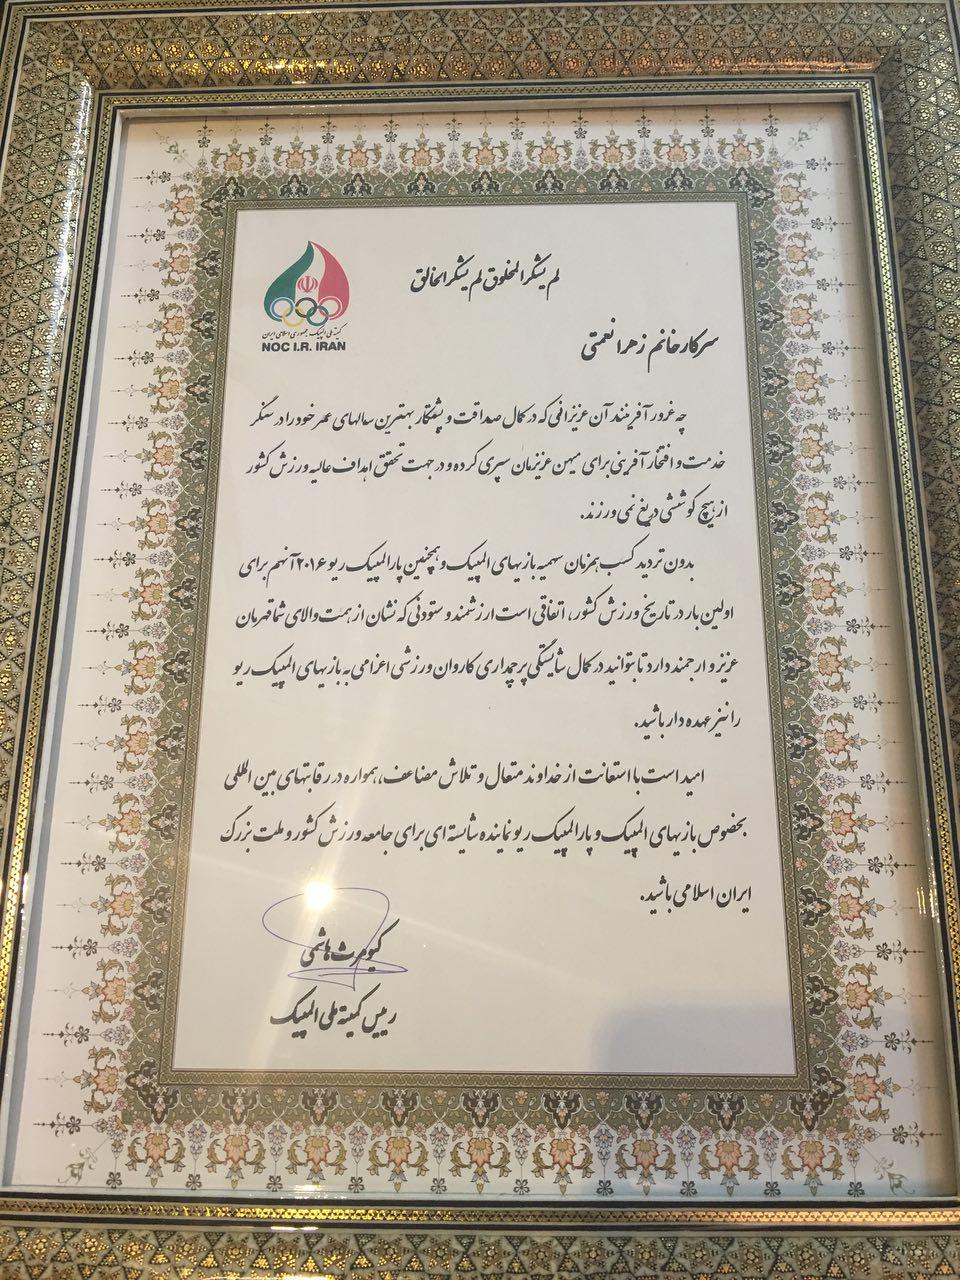 لم یشکر المخلوق لم یشکر الخالق
کمیته ملی المپیک جمهوری اسلامی ایران
NOC I.R. IRAN
سرکار خانم زهرا نعمتی
چه غرور آفرینند آن عزیزانی که در کمال صداقت و پشتکار بهترین سالهای عمر خود را در سنگر
خدمت و افتخار آفرینی برای میهن عزیزمان سپری کرده و در جهت تحقق اهداف عالیه ورزش کشور
از هیچ کوششی دریغ نمی ورزند.
بدون تردید کسب همزمان سهمیه بازیهای المپیک و همچنین پارالمپیک ریو ۲۰۱۶ آنهم برای
اولین بار در تاریخ ورزش کشور، اتفاقی است ارزشمند و ستودنی که نشان از همت والای شما قهرمان
عزیز و ارجمند دارد تا بتوانید در کمال شایستگی پرچمداری کاروان ورزشی اعزامی به بازیهای المپیک ریو
را نیز عهده دار باشید.
امید است با استعانت از خداوند متعال و تلاش مضاعف، همواره در رقابتهای بین المللی
بخصوص بازیهای المپیک و پارالمپیک ریو نماینده شایسته ای برای جامعه ورزش کشور و ملت بزرگ
ایران اسلامی باشید.
کیومرث هاشمی
رییس کمیته ملی المپیک